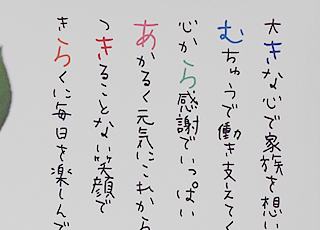 大きな心で家族を想い
むちゅうで働き支えてく
心から感謝でいっぱい
あかるく元気にこれから
つきることない笑顔で
きらくに毎日を楽しんで